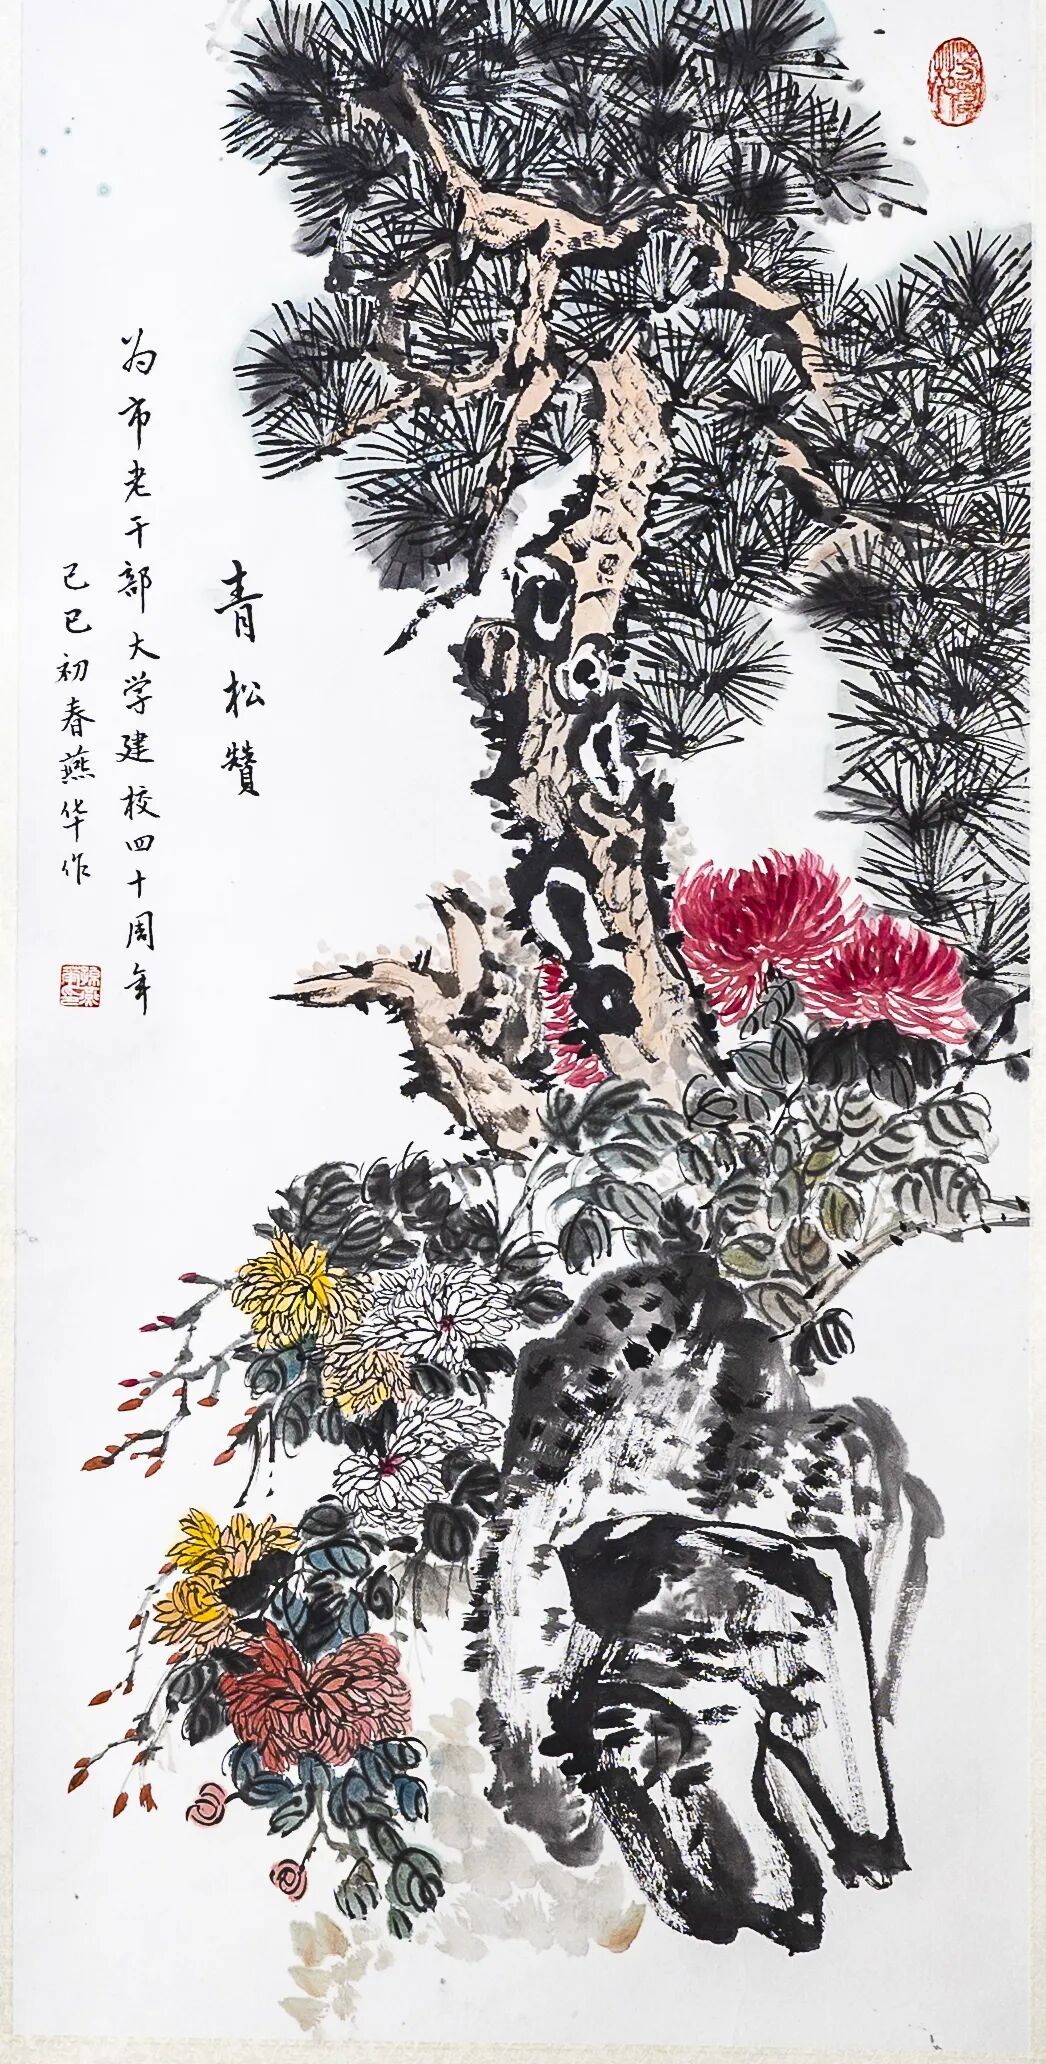 青松赞
为市老干部大学建校四十周年
己巳初春燕华作